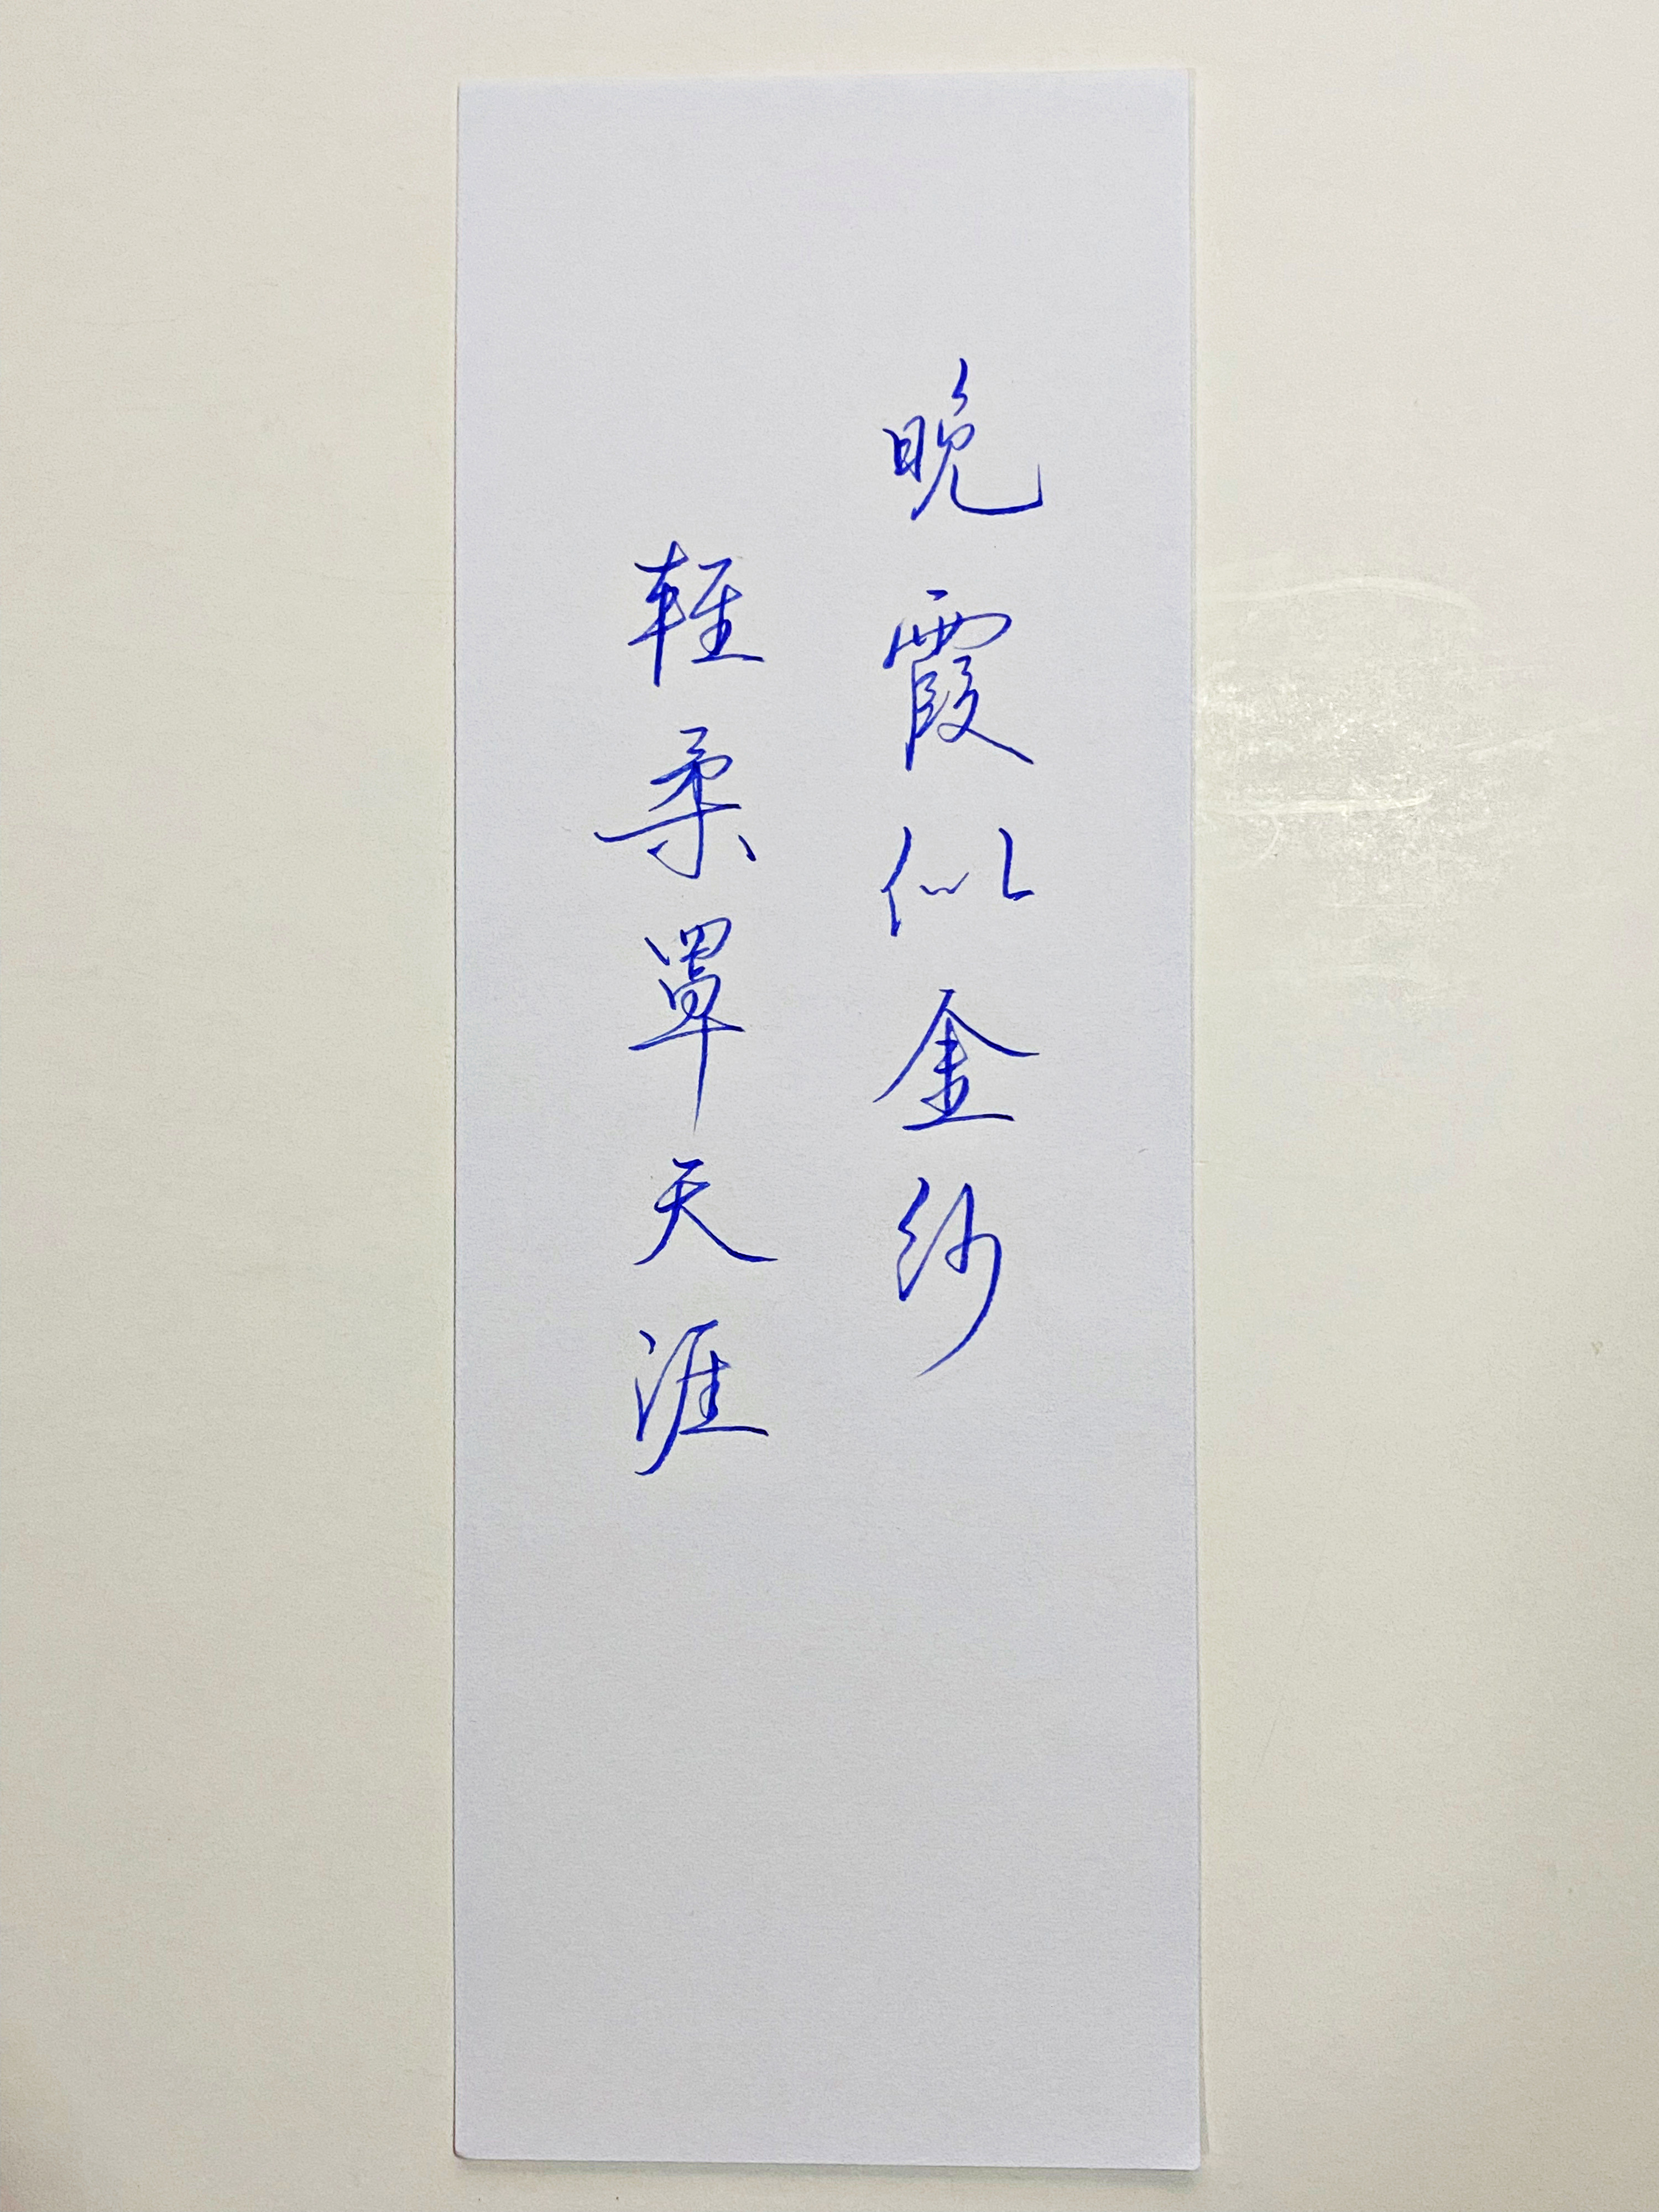 晚霞似金紗
輕柔罩天涯